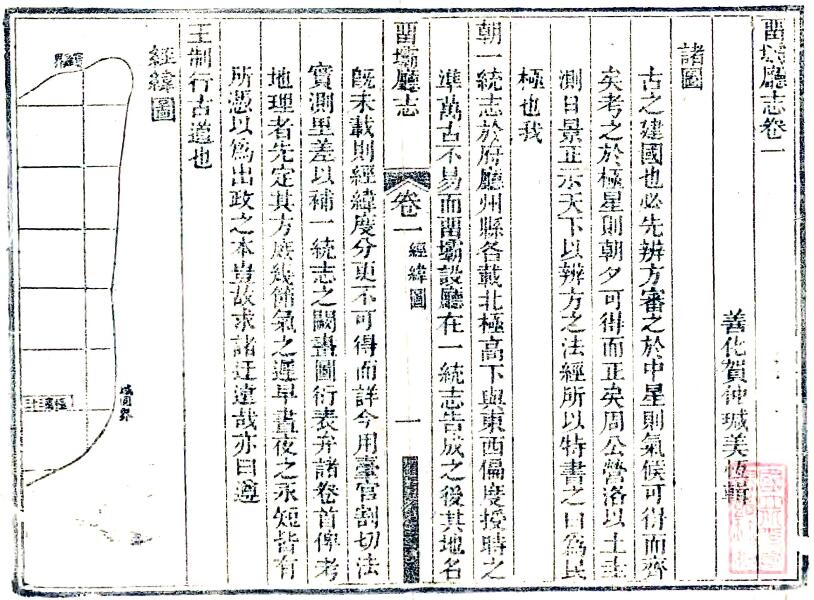 畱壩廳志卷一
善化賀仲瑊美恆輯
諸圖
古之建國也必先辨方審之於中星則氣候可得而齊
矣考之於極星則朝夕可得而正矣周公營洛以土圭
測日景正示天下以辨方之法經所以特書之曰為民
極也我
朝一統志於府廳州縣各載北極高下與東西偏度授時之
準萬古不易而畱壩設廳在一統志告成之後其地名
畱壩廳志
卷一
經緯圖
一
旣未載則經緯度分更不可得而詳今用臺官割切法
實測里差以補一統志之闕畫圖衍表弁諸卷首俾考
地理者先定其方庶幾節氣之遲早晝夜之永短皆有
所憑以為出政之本豈故求諸迂遠哉亦曰遵
王制行古道也
經緯圖
城固界